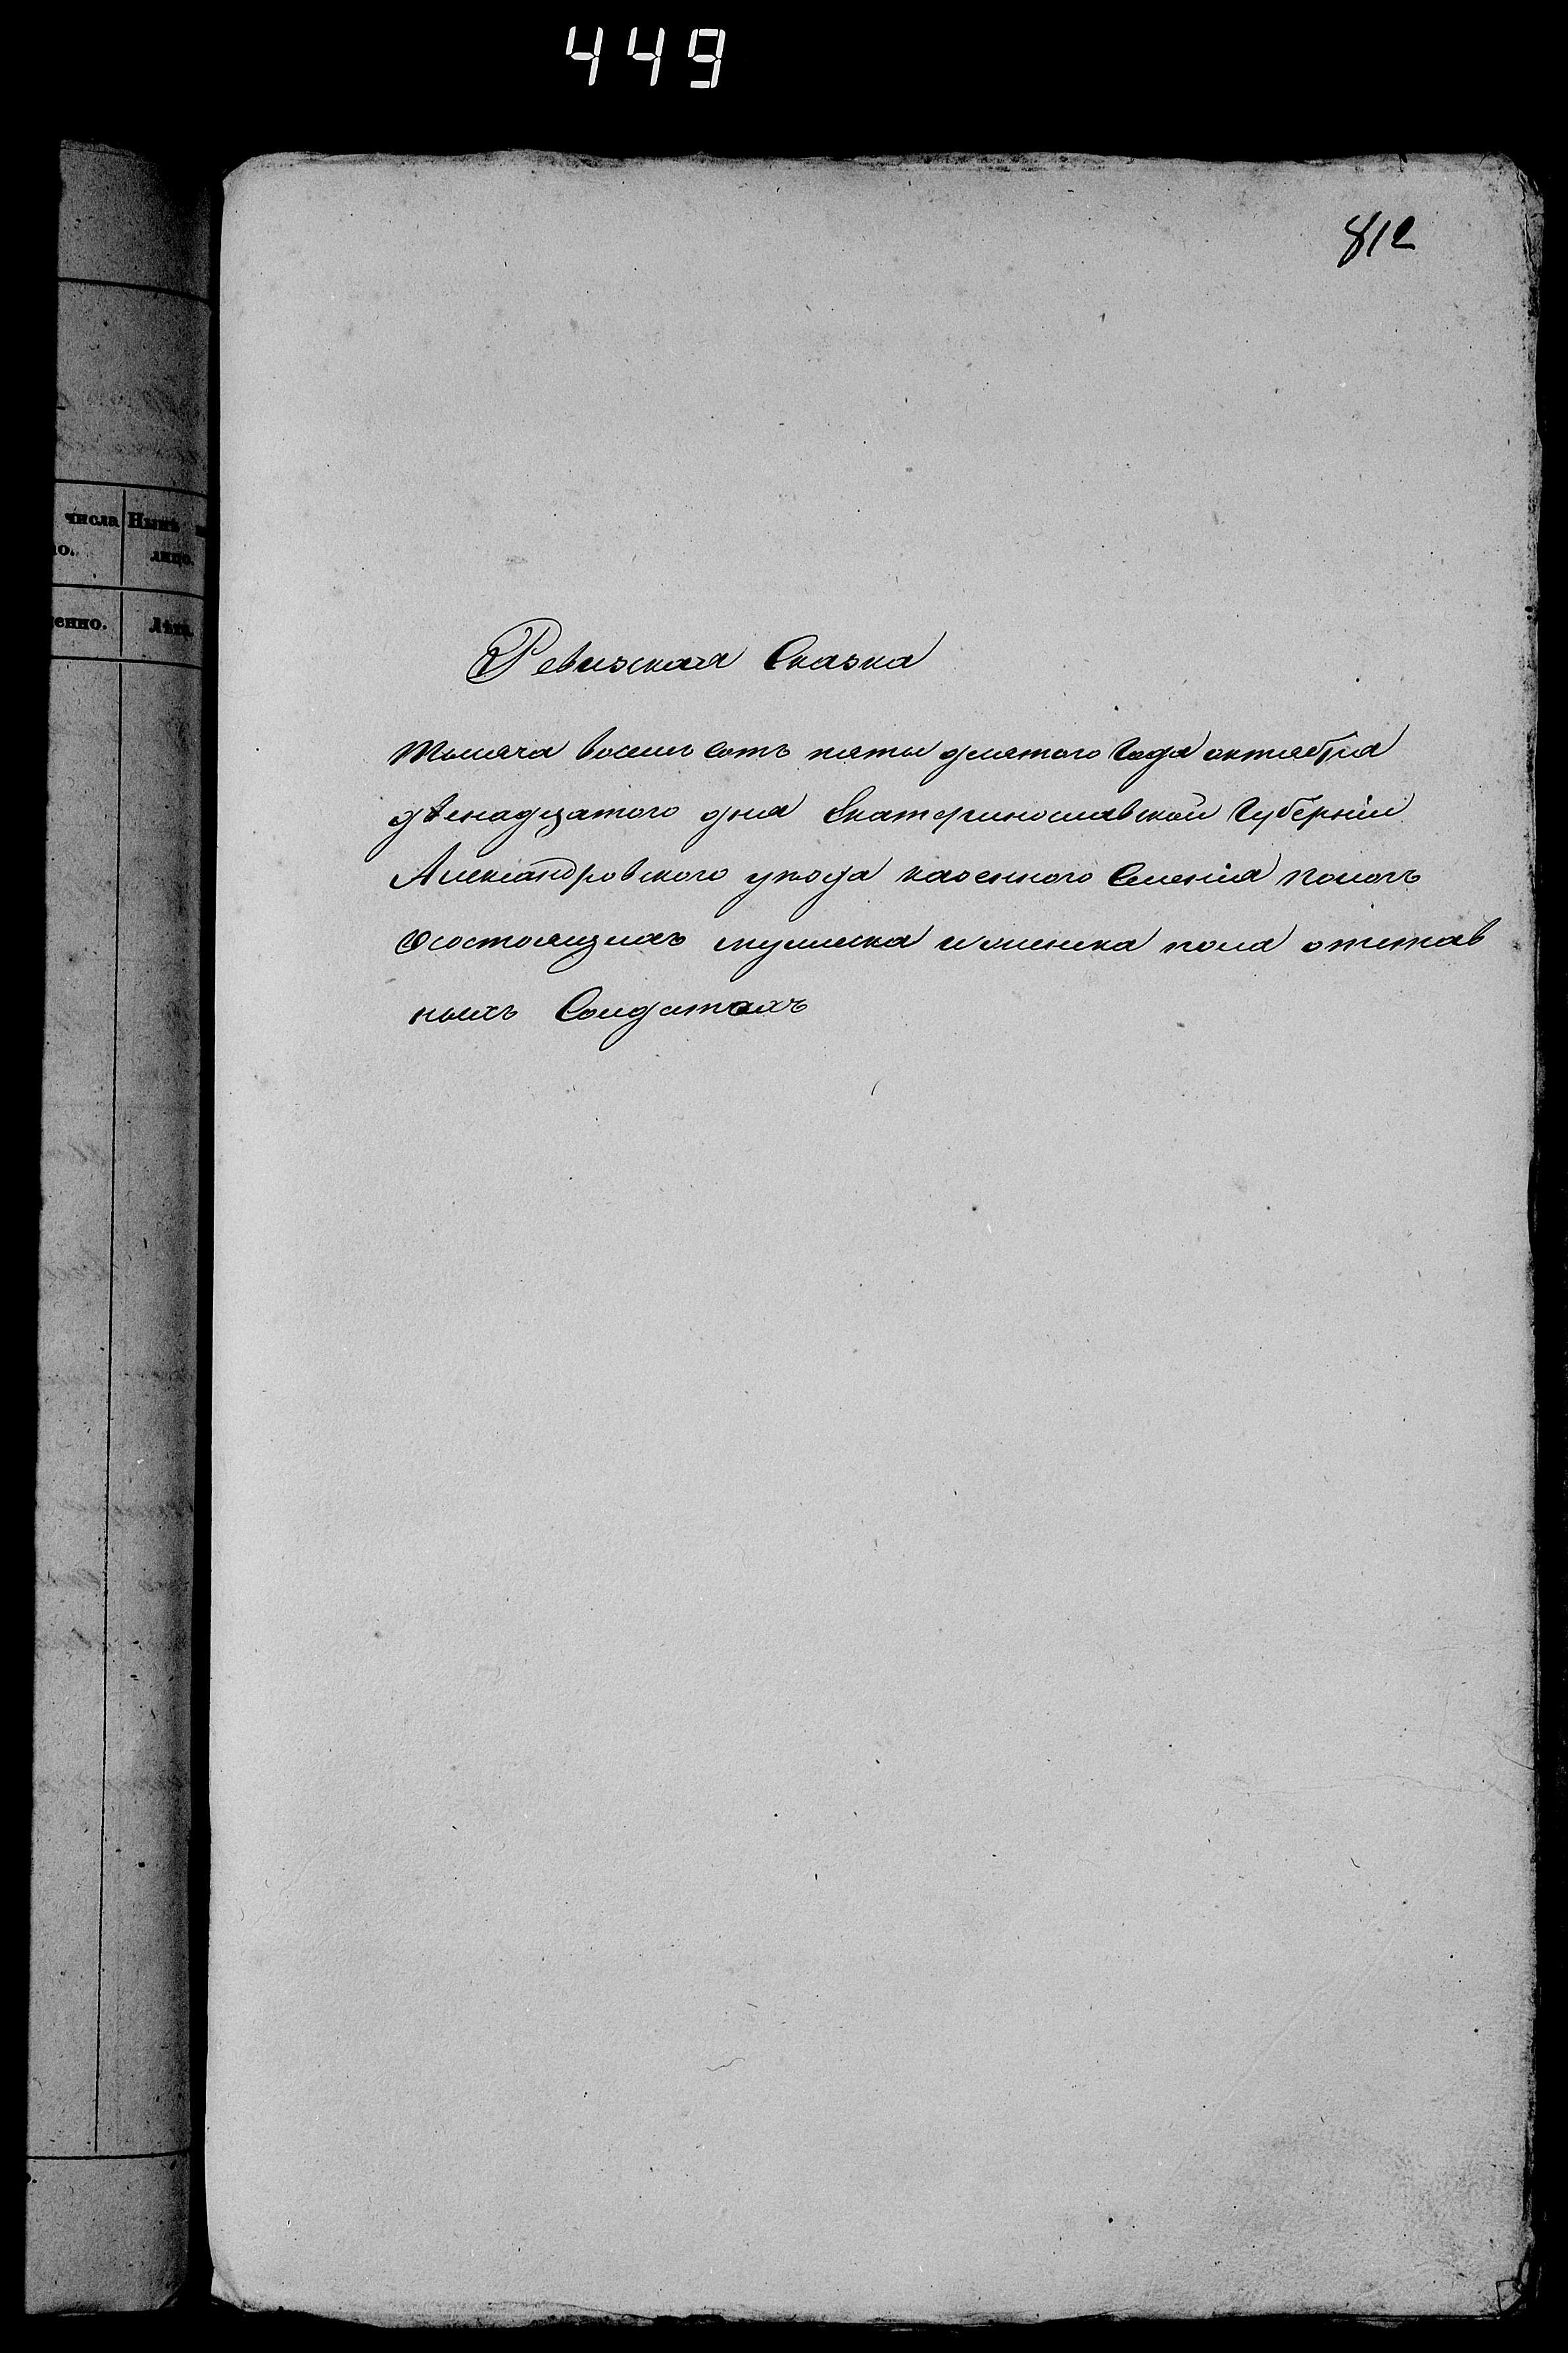 449
812
числа Нынѣ
ло. лицо.
енно. Лѣта.
Ревизская Сказка
тысяча восемь сотъ пяты десятого Года октября
двенадцатого дня Екатеринославской Губерніи
Александровского уѣзда казенного Селенія Пологъ
Осостоящихъ мужеска иженска пола отстав
ныхъ Солдатахъ